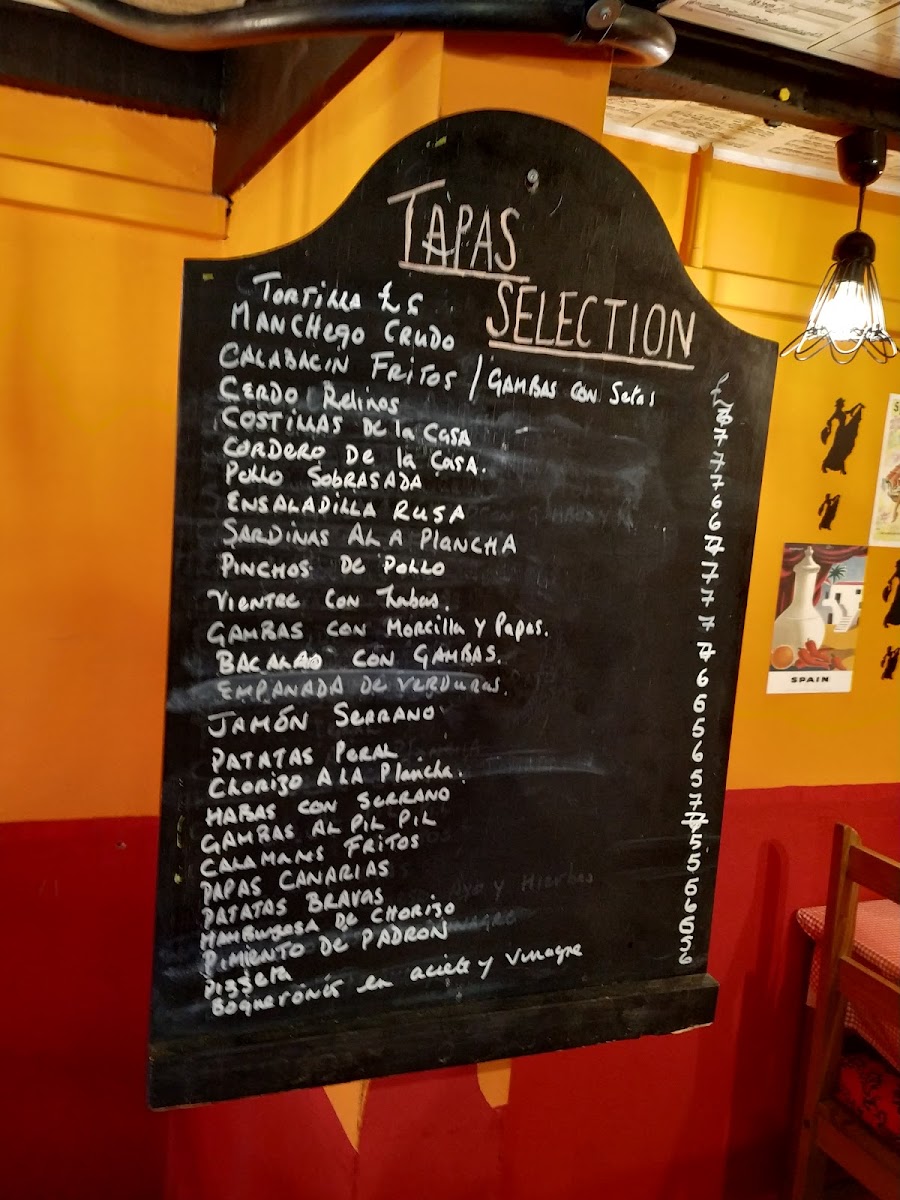 TAPAS
SELECTION
TORTILLA £5
MANCHEGO CRUDO
CALABACIN FRITOS / GAMBAS CON Setas
CERDO Relinos
COSTILLAS De la CASA
CORDERO De la CASA.
POLLO SOBRASADA
ENSALADILLA RUSA
SARDINAS A LA PLANCHA
PINCHOS DE POLLO
VIENTRE CON habas.
GAMBAS CON Morcilla Y Papas.
BACALAO CON GAMBAS.
EMPANADA DE VERDURAS.
JAMÓN SERRANO
PATATAS PERAL
CHORIZO A LA Plancha.
HABAS CON SERRANO
GAMBAS AL PIL PIL
CALAMARES FRITOS
PAPAS CANARIAS
PATATAS BRAVAS
HAMBURGSA DE CHORIZO
PIMIENTO DE PADRON
Boquerones en aciete y vinagre
7
7
7
6
6
7
7
7
7
6
6
5
6
5
7
5
5
6
6
6
5
6
SPAIN